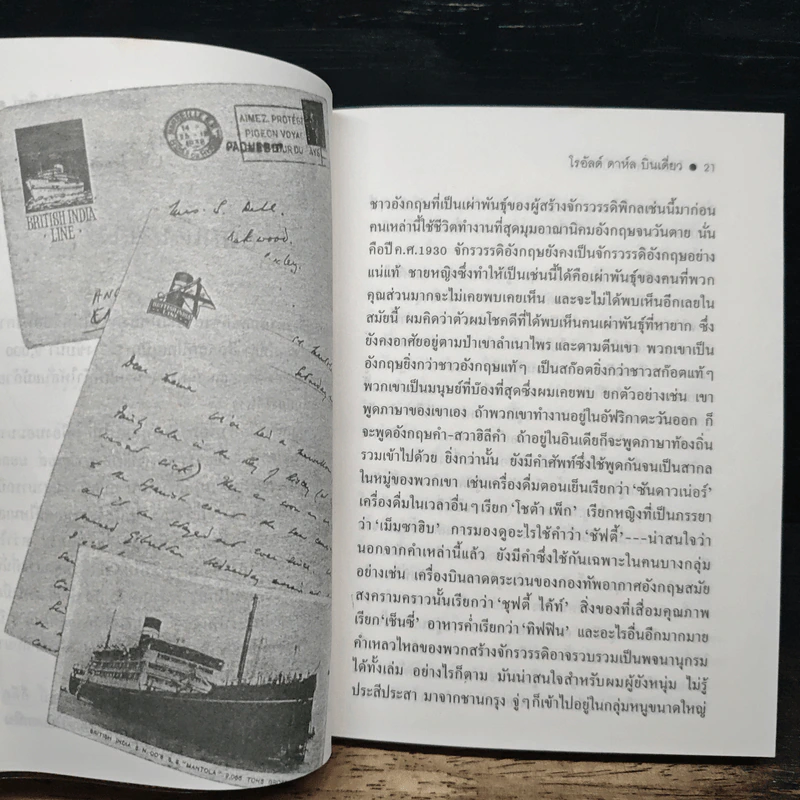 AIMEZ, PROTÉGE
PIGEON VOYA
PAQUEBOT
DU
BRITISH INDIA
LINE
Mrs. S. Dahl,
Oakwood,
Bexley,
Dear Mama
We've had a
Bay of
the Spanish coast the
and it has stayed
Gibraltar Saturday
BRITISH INDIA S. N. CO'S S. S. "MANTOLA" 9,065 TONS
โรอัลด์ ดาห์ล บินเดี่ยว ● 21
ชาวอังกฤษที่เป็นเผ่าพันธุ์ของผู้สร้างจักรวรรดิพิกลเช่นนี้มาก่อน
คนเหล่านี้ใช้ชีวิตทำงานที่สุดมุมอาณานิคมอังกฤษจนวันตาย นั่น
คือปี ค.ศ.1930 จักรวรรดิอังกฤษยังคงเป็นจักรวรรดิอังกฤษอย่าง
แน่แท้ ชายหญิงซึ่งทำให้เป็นเช่นนี้ได้คือเผ่าพันธุ์ของคนที่พวก
คุณส่วนมากจะไม่เคยพบเคยเห็น และจะไม่ได้พบเห็นอีกเลยใน
สมัยนี้ ผมคิดว่าตัวผมโชคดีที่ได้พบเห็นคนเผ่าพันธุ์ที่หายาก ซึ่ง
ยังคงอาศัยอยู่ตามป่าเขาลำเนาไพร และตามตีนเขา พวกเขาเป็น
อังกฤษยิ่งกว่าชาวอังกฤษแท้ๆ เป็นสก๊อตยิ่งกว่าชาวสก๊อตแท้ๆ
พวกเขาเป็นมนุษย์ที่บ๊องที่สุดซึ่งผมเคยพบ ยกตัวอย่างเช่น เขา
พูดภาษาของเขาเอง ถ้าพวกเขาทำงานอยู่ในอัฟริกาตะวันออก ก็
จะพูดอังกฤษคำ-สวาฮิลีคำ ถ้าอยู่ในอินเดียก็จะพูดภาษาท้องถิ่น
รวมเข้าไปด้วย ยิ่งกว่านั้น ยังมีคำศัพท์ซึ่งใช้พูดกันจนเป็นสากล
ในหมู่ของพวกเขา เช่นเครื่องดื่มตอนเย็นเรียกว่า ‘ซันดาวเน่อร์’
เครื่องดื่มในเวลาอื่นๆ เรียก ‘โชต้า เพ็ก’ เรียกหญิงที่เป็นภรรยา
ว่า ‘เม็มซาฮิบ’ การมองดูอะไรใช้คำว่า ‘ชัฟตี้’---น่าสนใจว่า
นอกจากคำเหล่านี้แล้ว ยังมีคำซึ่งใช้กันเฉพาะในคนบางกลุ่ม
อย่างเช่น เครื่องบินลาดตระเวนของกองทัพอากาศอังกฤษสมัย
สงครามคราวนั้นเรียกว่า ‘ชุฟตี้ ไค้ท์’ สิ่งของที่เสื่อมคุณภาพ
เรียก ‘เช็นซี่’ อาหารค่ำเรียกว่า ‘ทิฟฟิน’ และอะไรอื่นอีกมากมาย
คำเหลวไหลของพวกสร้างจักรวรรดิอาจรวบรวมเป็นพจนานุกรม
ได้ทั้งเล่ม อย่างไรก็ตาม มันน่าสนใจสำหรับผมผู้ยังหนุ่ม ไม่รู้
ประสีประสา มาจากชานกรุง จู่ๆ ก็เข้าไปอยู่ในกลุ่มหนูขนาดใหญ่